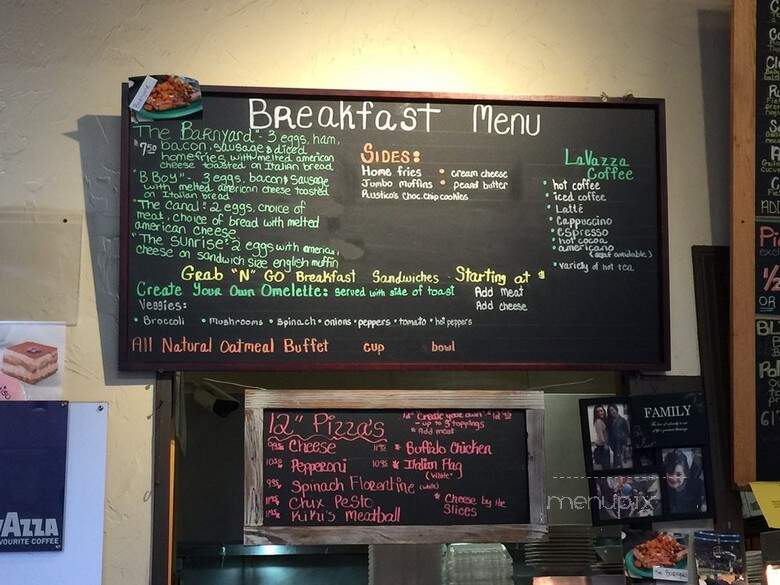 Breakfast Menu
"The Barnyard" - 3 eggs, ham,
7.50 bacon, sausage & diced
homefries with melted american
cheese toasted on Italian bread
"B Boy" - 3 eggs, bacon & sausage
with melted american cheese toasted
on Italian bread
"The Canal: 2 eggs, choice of
meat, choice of bread with melted
american cheese
"The sunrise: 2 eggs with american
cheese on sandwich size english muffin
SIDES:
Home fries • cream cheese
Jumbo muffins • peanut butter
Rustico's choc. chip cookies
LaVazza
Coffee
• hot coffee
• iced coffee
• Latte
• Cappuccino
• espresso
• hot cocoa
• americano
(decaf available)
• variety of hot tea
Grab "N" GO Breakfast Sandwiches - Starting at $
Create Your Own Omelette: served with side of toast Add meat
Veggies: Add cheese
• Broccoli • mushrooms • spinach • onions • peppers • tomato • hot peppers
All Natural Oatmeal Buffet cup bowl
12" Pizza's
12" "Create your own"
- up to 3 toppings
* Add meat
Cheese
* Buffalo Chicken
Pepperoni
* Italian Flag
(white)
Spinach Florentine (white)
Chix Pesto
* Cheese by the
Slices
Kiki's Meatball
FAMILY
menupix
AZZA
VOURITE COFFEE